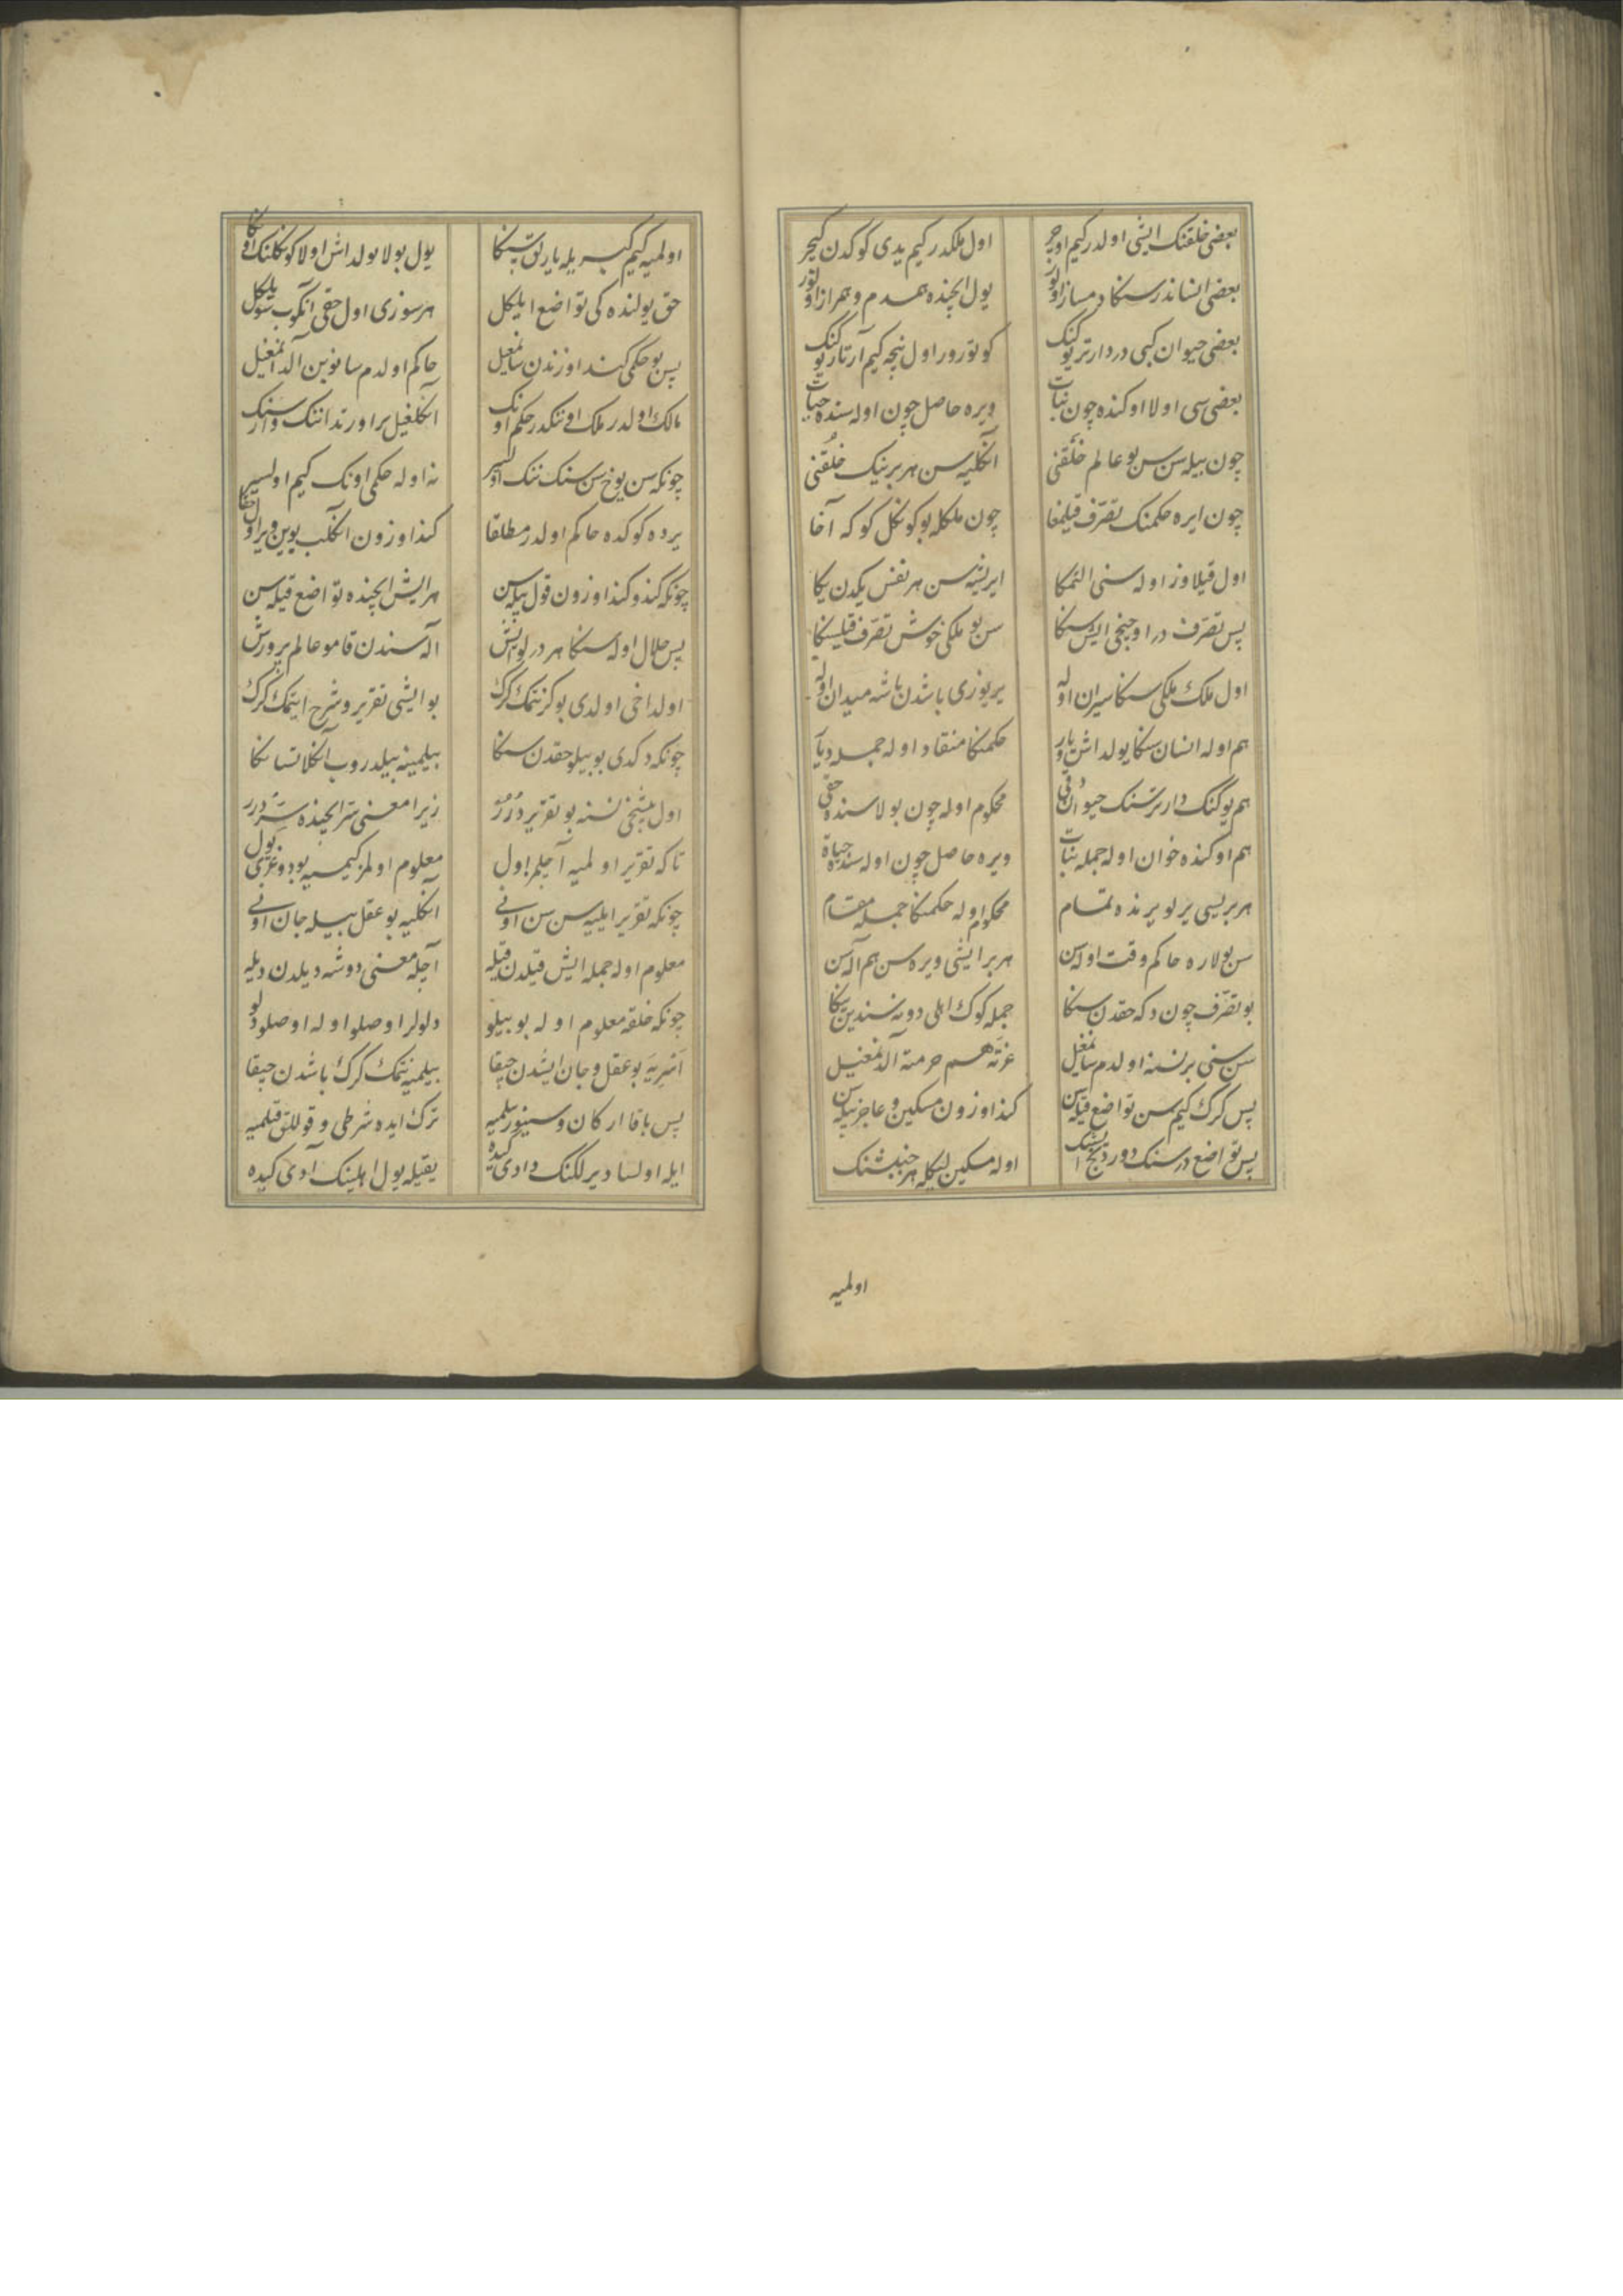 بعضی خلقنک ایشی اولدر کیم اوچر اول ملکدر کیم یدی کوکدن کیچر
بعضی انساندر سنکا دمساز اولور یول ایچنده همدم و همراز اولور
بعضی حیوان کبی دردارتر یوکنک کوتورور اول نیچه کیم آرتار یوکنک
بعضی سی اولا اوکنده چون نبات ویره حاصل چون اوله سنده حیات
چون بیله سن سن بو عالم خلقنی انکلیه سن هر برینک خلقنی
چون ایره حکمنک تصرف قیلمغا چون ملکله بو کونکل کوکه آخا
اول قیلاوز اوله سنی التمکا ایریشه سن هر نفس یکدن یکا
پس تصرف در اوچنجی ایش سنکا سن بو ملکی خوش تصرف قیلسنکا
اول ملک ملکی سنکا سیران اوله یر یوزی باشدن باشه میدان اوله
هم اوله انسان سنکا یولداش و یار حکمنکا منقاد اوله جمله دیار
هم یوکنک دارترسنک حیوان محکوم اوله چون بولا سنده حقی
هم اوکنده خوان اوله جمله نبات ویره حاصل چون اوله سنده حیاة
هر بریسی یرلو یرنده تمام محکوم اوله حکمنکا جمله مقام
سن بولاره حاکم وقت اوله سن هر بر ایشی ویره سن هم آله سن
بو تصرف چون دکه حقدن سنکا جمله کوک اهلی دونه سندین یکا
سن سنی بر نسنه اولدم سانمغیل عزته هم حرمته آلدنمغیل
پس کرک کیم سن تواضع قیله سن کندوزون مسکین و عاجز بیله سن
پس تواضع در سنک دوردنجی ایشنک اوله مسکین لیکله هر جنبشنک
اولمیه
اولمیه کیم کبریله یارلق سنکا یول بولا یولداش اولا کونکلنک اونکا
حق یولنده کی تواضع ایلکل هر سوزی اول حقی آنکوب سویلکل
پس بو حکمی کند اوزندن سانمغیل حاکم اولدم سانوبن آلدانمغیل
مالک اولدر ملک اوننکدر حکم اونک انکلغیل بر اورتد اننک وارسنک
چونکه سن یوخ سن سنک ننک اولیسر نه اوله حکمی اونک کیم اولیسر
یرده کوکده حاکم اولدر مطلقا کنداوزون انکلب یوین ویر اول حقا
چونکه کندو کنداوزون قول بیله سن هر ایش ایچنده تواضع قیله سن
پس حلال اوله سنکا هر درلو ایش آله سندن قامو عالم پرورش
اولداخی اولدی بو کز نتمک کرک بو ایشی تقریر و شرح ایتمک کرک
چونکه دکدی بو بیلو حقدن سنکا بیلمینه بیلدروب آنکلاتسانکا
اول بیشنجی نسنه بو تقریر درر زیرا معنی سر ایچنده سر درر
تا که تقریر اولمیه آچلمز اول معلوم اولمز کیمسیه بو دوغری یول
چونکه تقریر ایلیه سن سن اونی انکلیه بو عقل بیله جان اونی
معلوم اوله جمله ایش قیلدن قیله آچله معنی دوشه دیلدن دیله
چونکه خلقه معلوم اوله بو بیلو دلولر اوصلو اوله اوصلو دلو
اسریه بو عقل و جان ایشدن چیقا بیلمیه نتمک کرک باشدن چیقا
پس باقا ارکان و سینور بیلمیه ترک ایده شرطی و قوللق قیلمیه
ایله اولسا دیرلکنک دادی کیده یقیله یول اهلینک آدی کیده